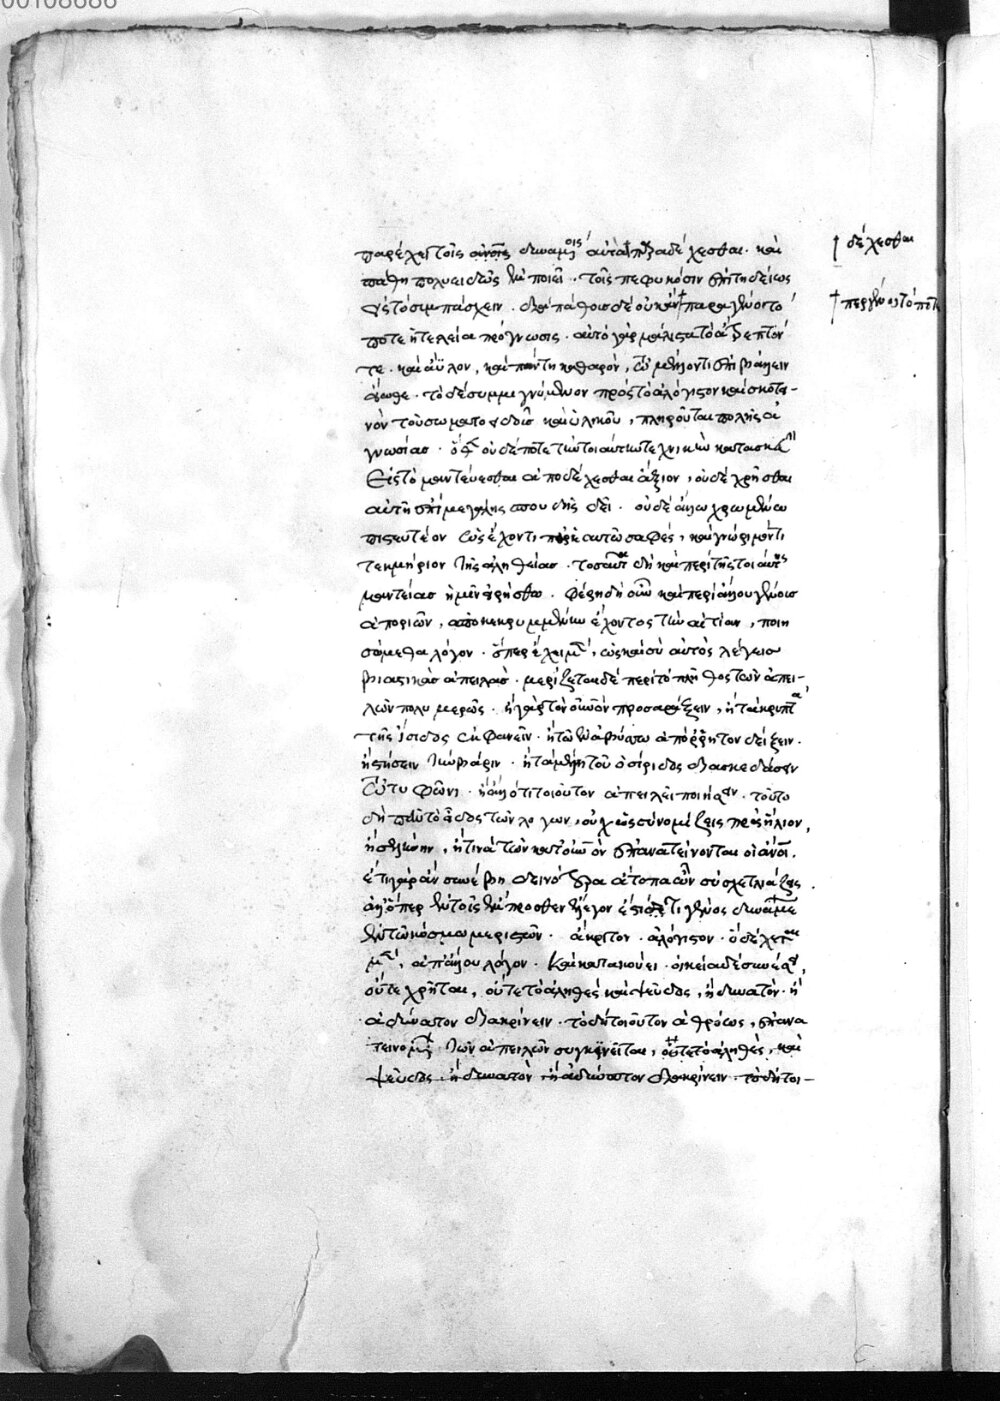 00108686
παρέχει τοῖς δυναμένοις αὐτὰ δέχεσθαι· καὶ
δέχεσθαι
πάθη πολυειδῶς ἐμποιεῖ· τοῖς πεφυκόσιν ἐπιτηδείως
εἰς τὸ συμπάσχειν· διὰ πάθους δὲ οὐκ ἂν παραγένοιτό
ποτε ἡ τελεία πρόγνωσις· αὐτὸ γὰρ μάλιστα τὸ ἄτρεπτόν
τε· καὶ ἄϋλον, καὶ πάντη καθαρόν, τὸ μέλλον ἐπιβάλλειν
εἴωθε· τὸ δὲ συμμιγνύμενον πρὸς τὸ ἀλόγιστον καὶ σκοτει-
νὸν τοῦ σωματοειδοῦς καὶ ὑλικοῦ, πληροῦται πολλῆς ἀ
γνωσίας· οὐδέποτε τὴν τοιαύτην τεχνικὴν κατασκευὴν
εἰς τὸ μαντεύεσθαι ἀποδέχεσθαι ἄξιον, οὐδὲ χρῆσθαι
αὐτῇ ἐπὶ μεγάλης σπουδῆς δεῖ· οὐδὲ ἄλλῳ χρωμένῳ
πιστευτέον ὡς ἔχοντι παρ' ἑαυτῷ σαφές, καὶ γνώριμόν τι
τεκμήριον τῆς ἀληθείας· τοσαῦτα δὴ καὶ περὶ τῆς τοιαύτης
μαντείας ἡμῖν εἰρήσθω· φέρε δὴ οὖν καὶ περὶ ἄλλου γένους
ἀποριῶν, ἀποκεκρυμμένην ἔχοντος τὴν αἰτίαν, ποιη
σόμεθα λόγον· ὅπερ ἔχει μὲν, ὡς καὶ σὺ αὐτὸς λέγεις
βιαστικὰς ἀπειλάς· μερίζεται δὲ περὶ τὸ πλῆθος τῶν ἀπει-
λῶν πολυμερῶς· ἢ γὰρ τὸν οὐρανὸν προσαράξειν, ἢ τὰ κρυπτὰ
τῆς Ἴσιδος ἐκφανεῖν· ἢ τὸ ἐν ἀβύσσῳ ἀπόρρητον δείξειν·
ἢ στήσειν τὴν βάριν· ἢ τὰ μέλη τοῦ ὀσίριδος διασκεδάσειν
τῷ τυφῶνι· ἢ ἄλλο τι τοιοῦτον ἀπειλεῖ ποιήσειν· τοῦτο
δὴ πᾶν τὸ εἶδος τῶν λόγων, οὐχ ὡς σὺ νομίζεις πρὸς ἥλιον,
ἢ σελήνην, ἤ τινα τῶν κατ' οὐρανὸν ἐπανατείνονται οἱ ἄνθρωποι.
ἀλλ' ὅπερ ἐν τοῖς ἔμπροσθεν ἔλεγον ἔστι τι γένος δυνάμεων
ἐν τῷ κόσμῳ μεριστῶν· ἄκριτον· ἀλόγιστον· ὃ δέχεται
μὲν, ἀπ' ἄλλου λόγον· καὶ κατακούει· οἰκείᾳ δὲ συνέσει,
οὔτε χρῆται, οὔτε τὸ ἀληθὲς καὶ ψεῦδος, ἢ δυνατὸν· ἢ
ἀδύνατον διακρίνειν· τὸ δὴ τοιοῦτον ἀθρόως, ἐπανα
τεινομένων τῶν ἀπειλῶν συγκινεῖται, οὔτε τὸ ἀληθὲς, καὶ
ψεῦδος, ἢ δυνατὸν ἢ ἀδύνατον διακρίνειν· τὸ δὴ τοι-